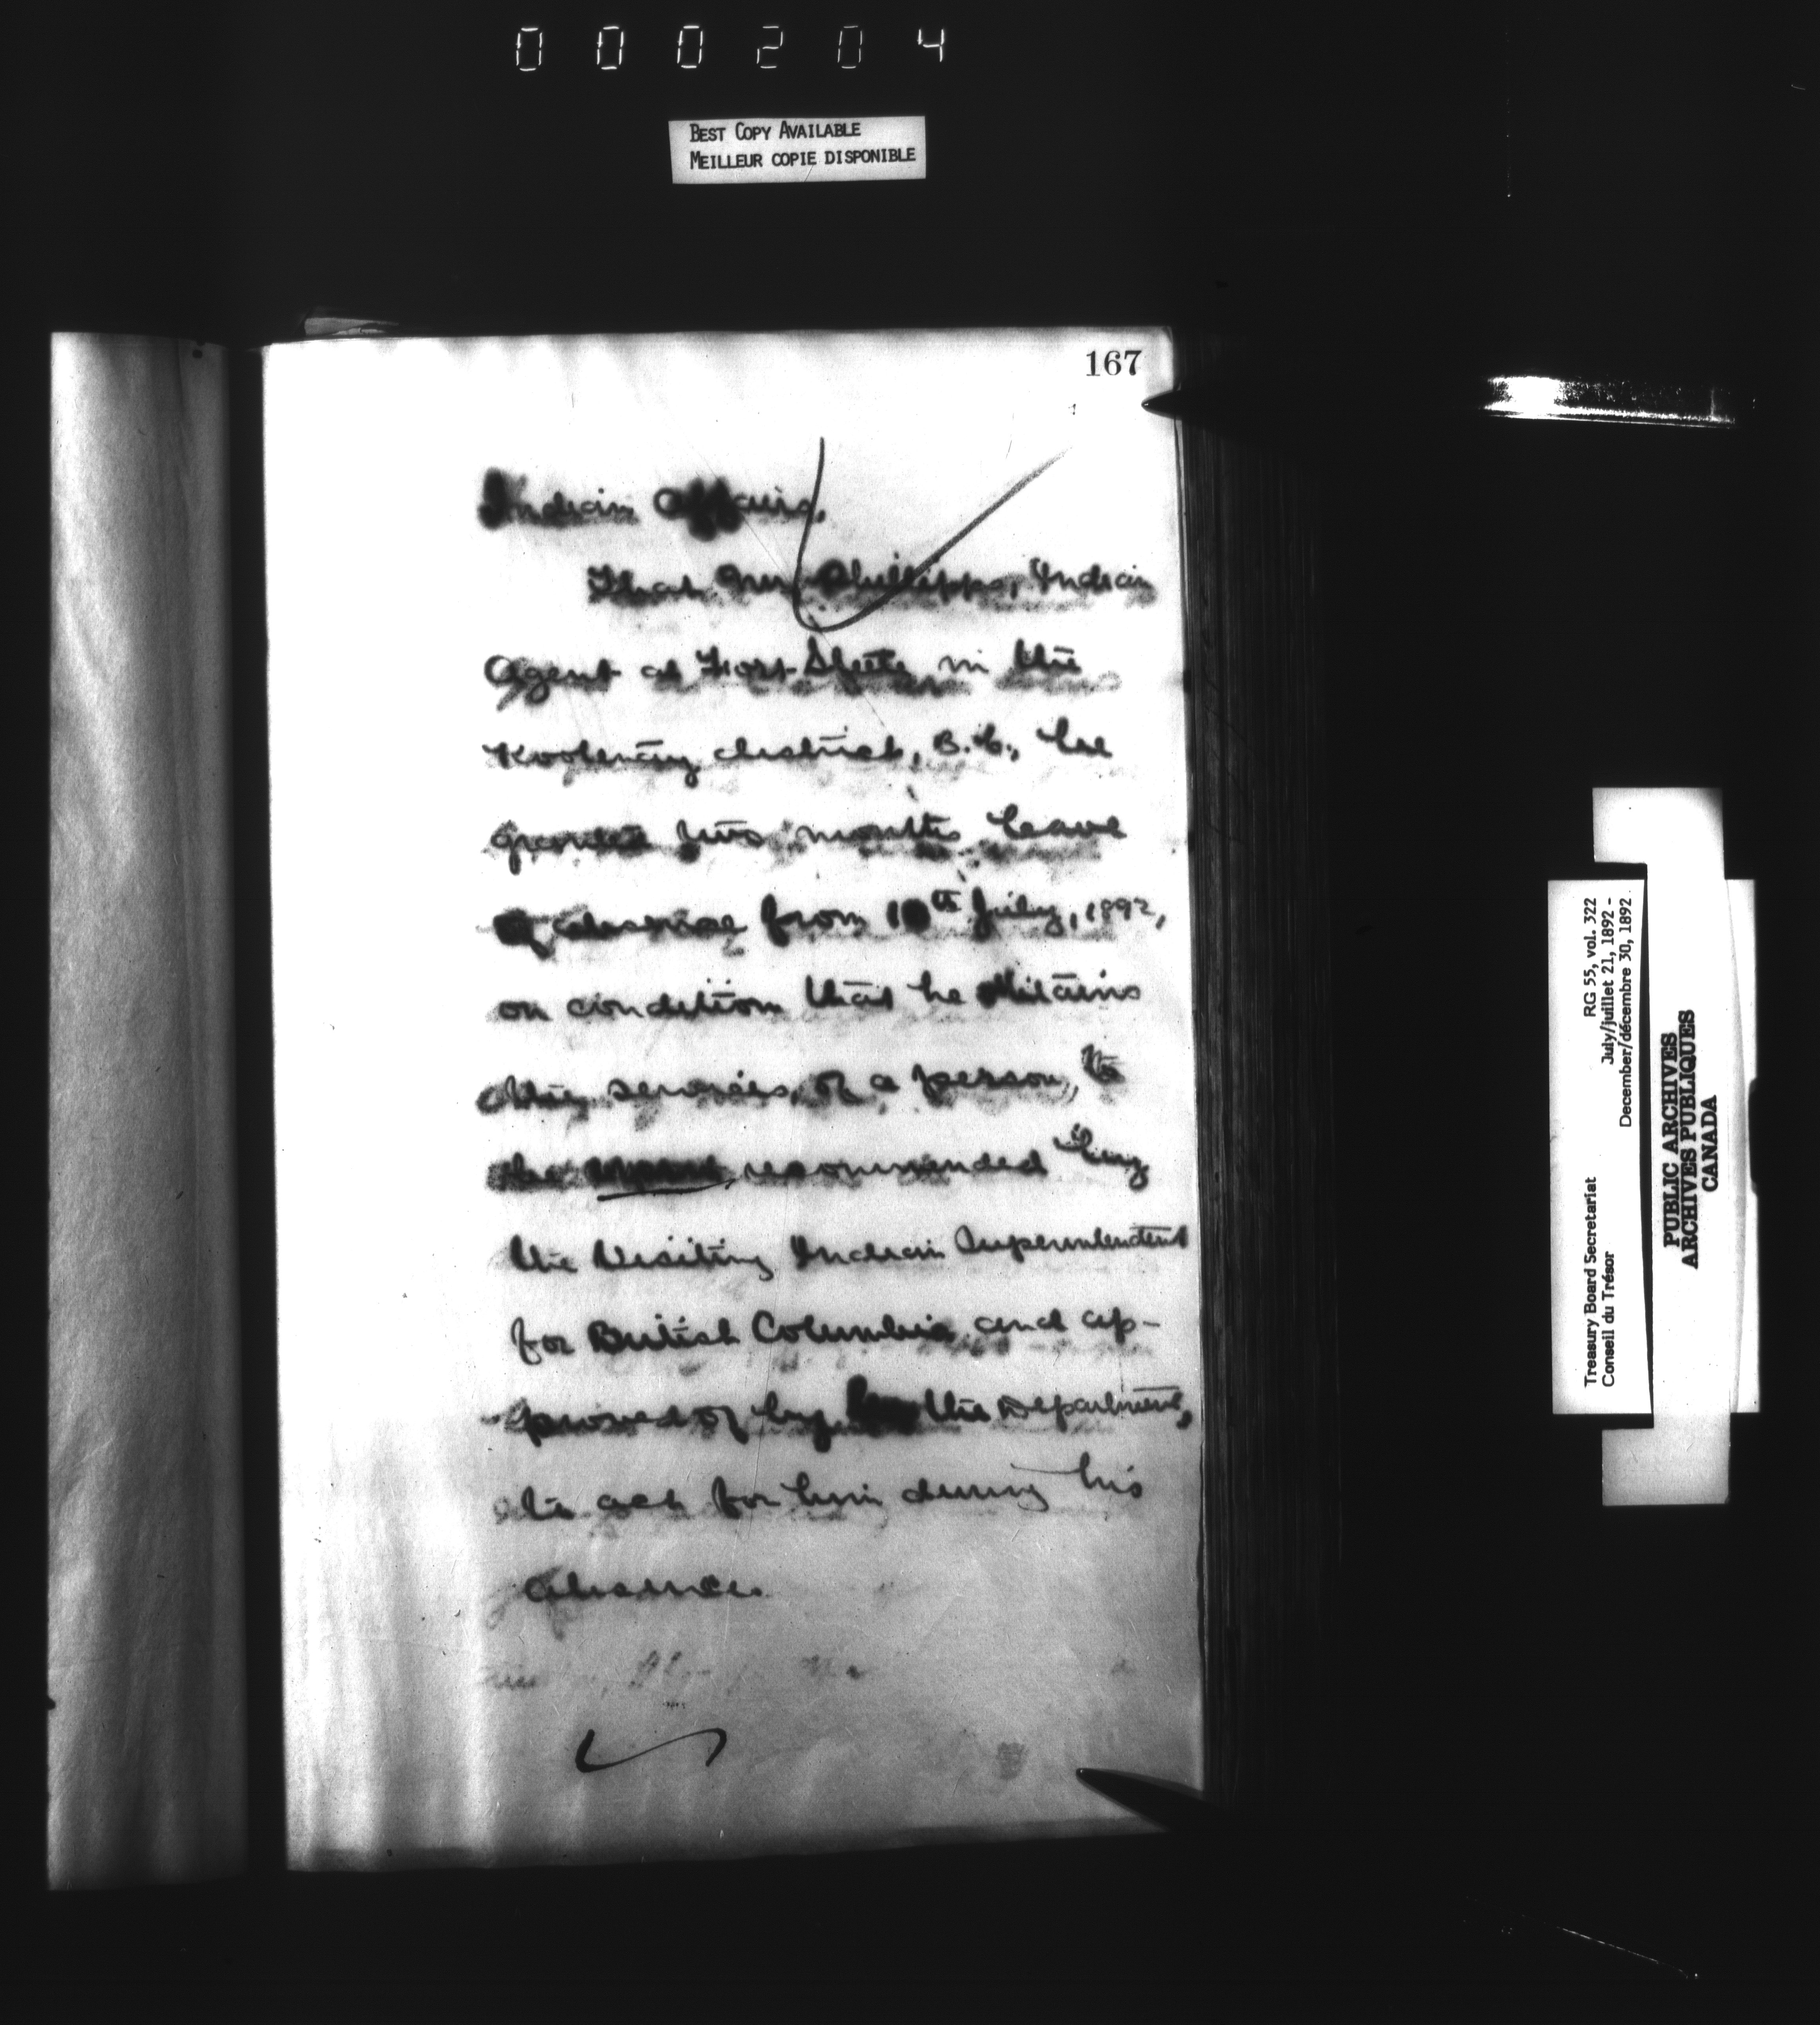 000204
BEST COPY AVAILABLE
MEILLEUR COPIE DISPONIBLE
167
Indian Affairs,
That Mr. Phillipps, Indian
Agent at Fort Steele, in the
Kootenay district, B.C., be
granted two months leave
of absence from 10th July, 1892,
on condition that he obtains
the services, of a person, to
be recommended by
the Visiting Indian Superintendent
for British Columbia, and ap-
proved of by the Department,
to act for him during his
absence.
Treasury Board Secretariat RG 55, vol. 322
Conseil du Trésor July/juillet 21, 1892 -
December/décembre 30, 1892
PUBLIC ARCHIVES
ARCHIVES PUBLIQUES
CANADA